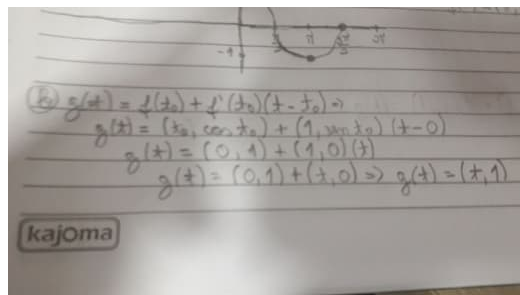 -1 π/2 π 3π/2 2π
b) g(t) = f(t₀) + f'(t₀)(t - t₀) =>
g(t) = (t₀, cos t₀) + (1, sen t₀) (t - 0)
g(t) = (0, 1) + (1, 0)(t)
g(t) = (0, 1) + (t, 0) => g(t) = (t, 1)
kajoma